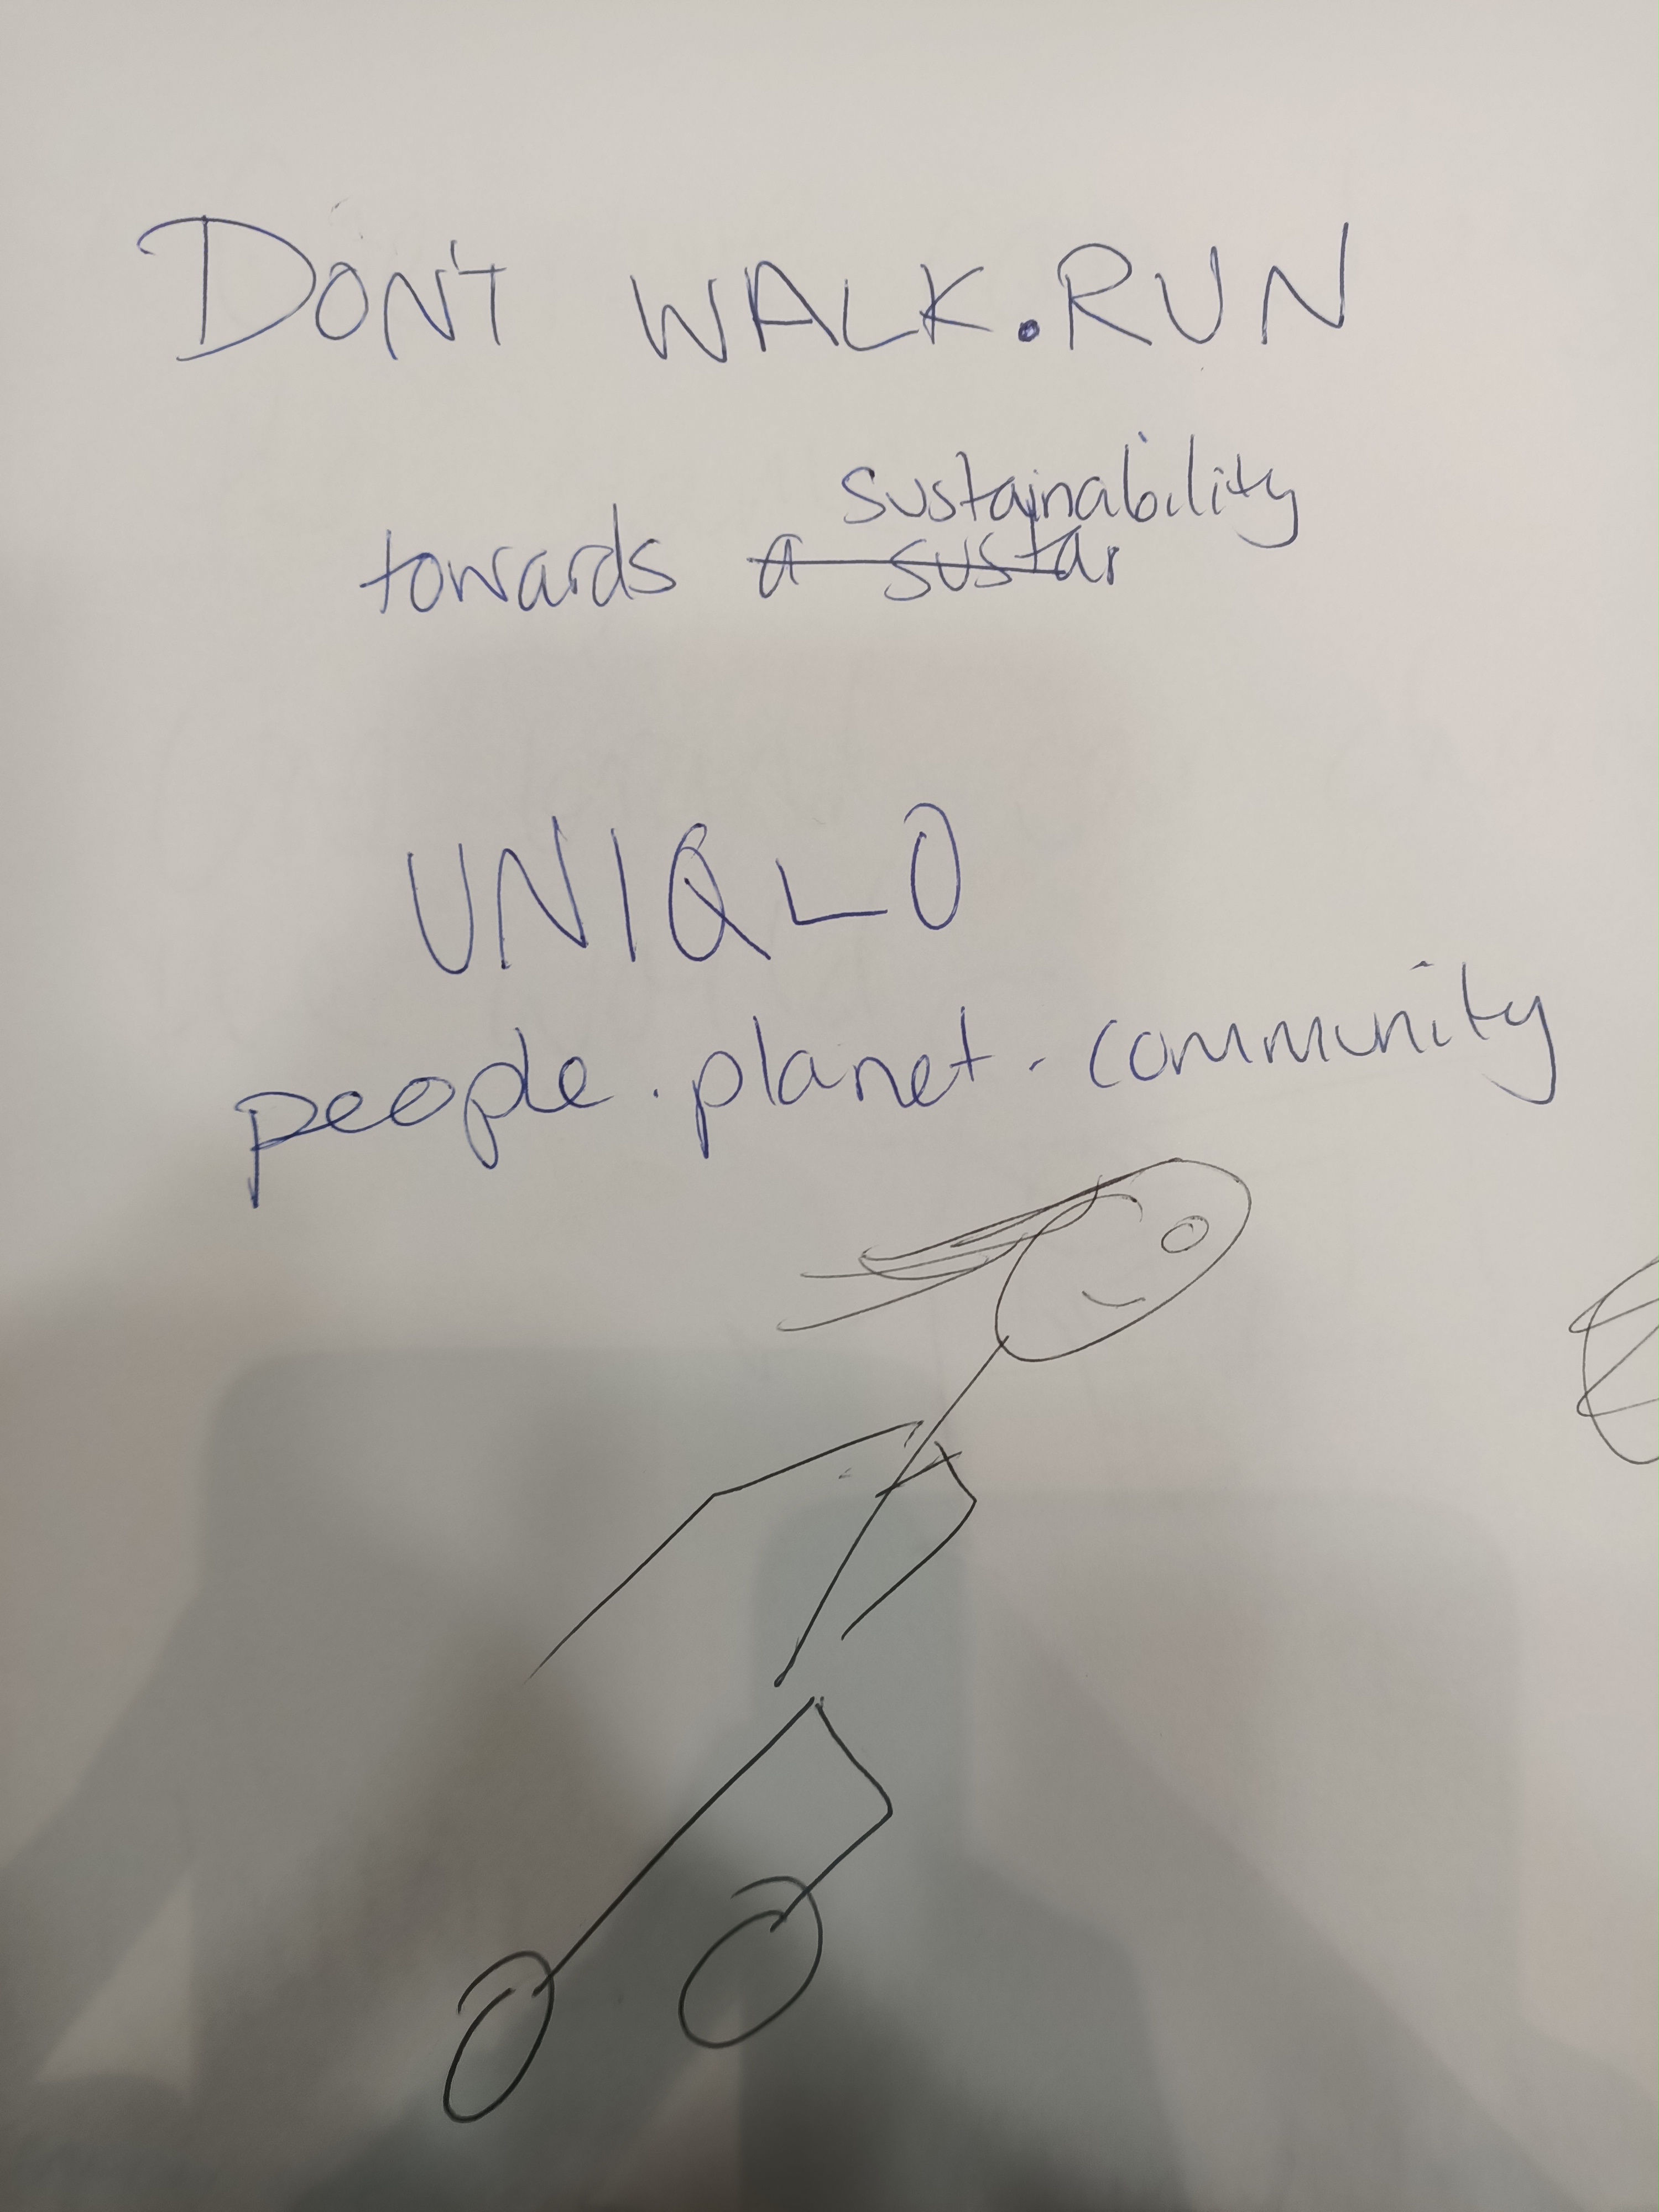 DON'T WALK.RUN
sustainability
towards a sustai
UNIQLO
people.planet.community